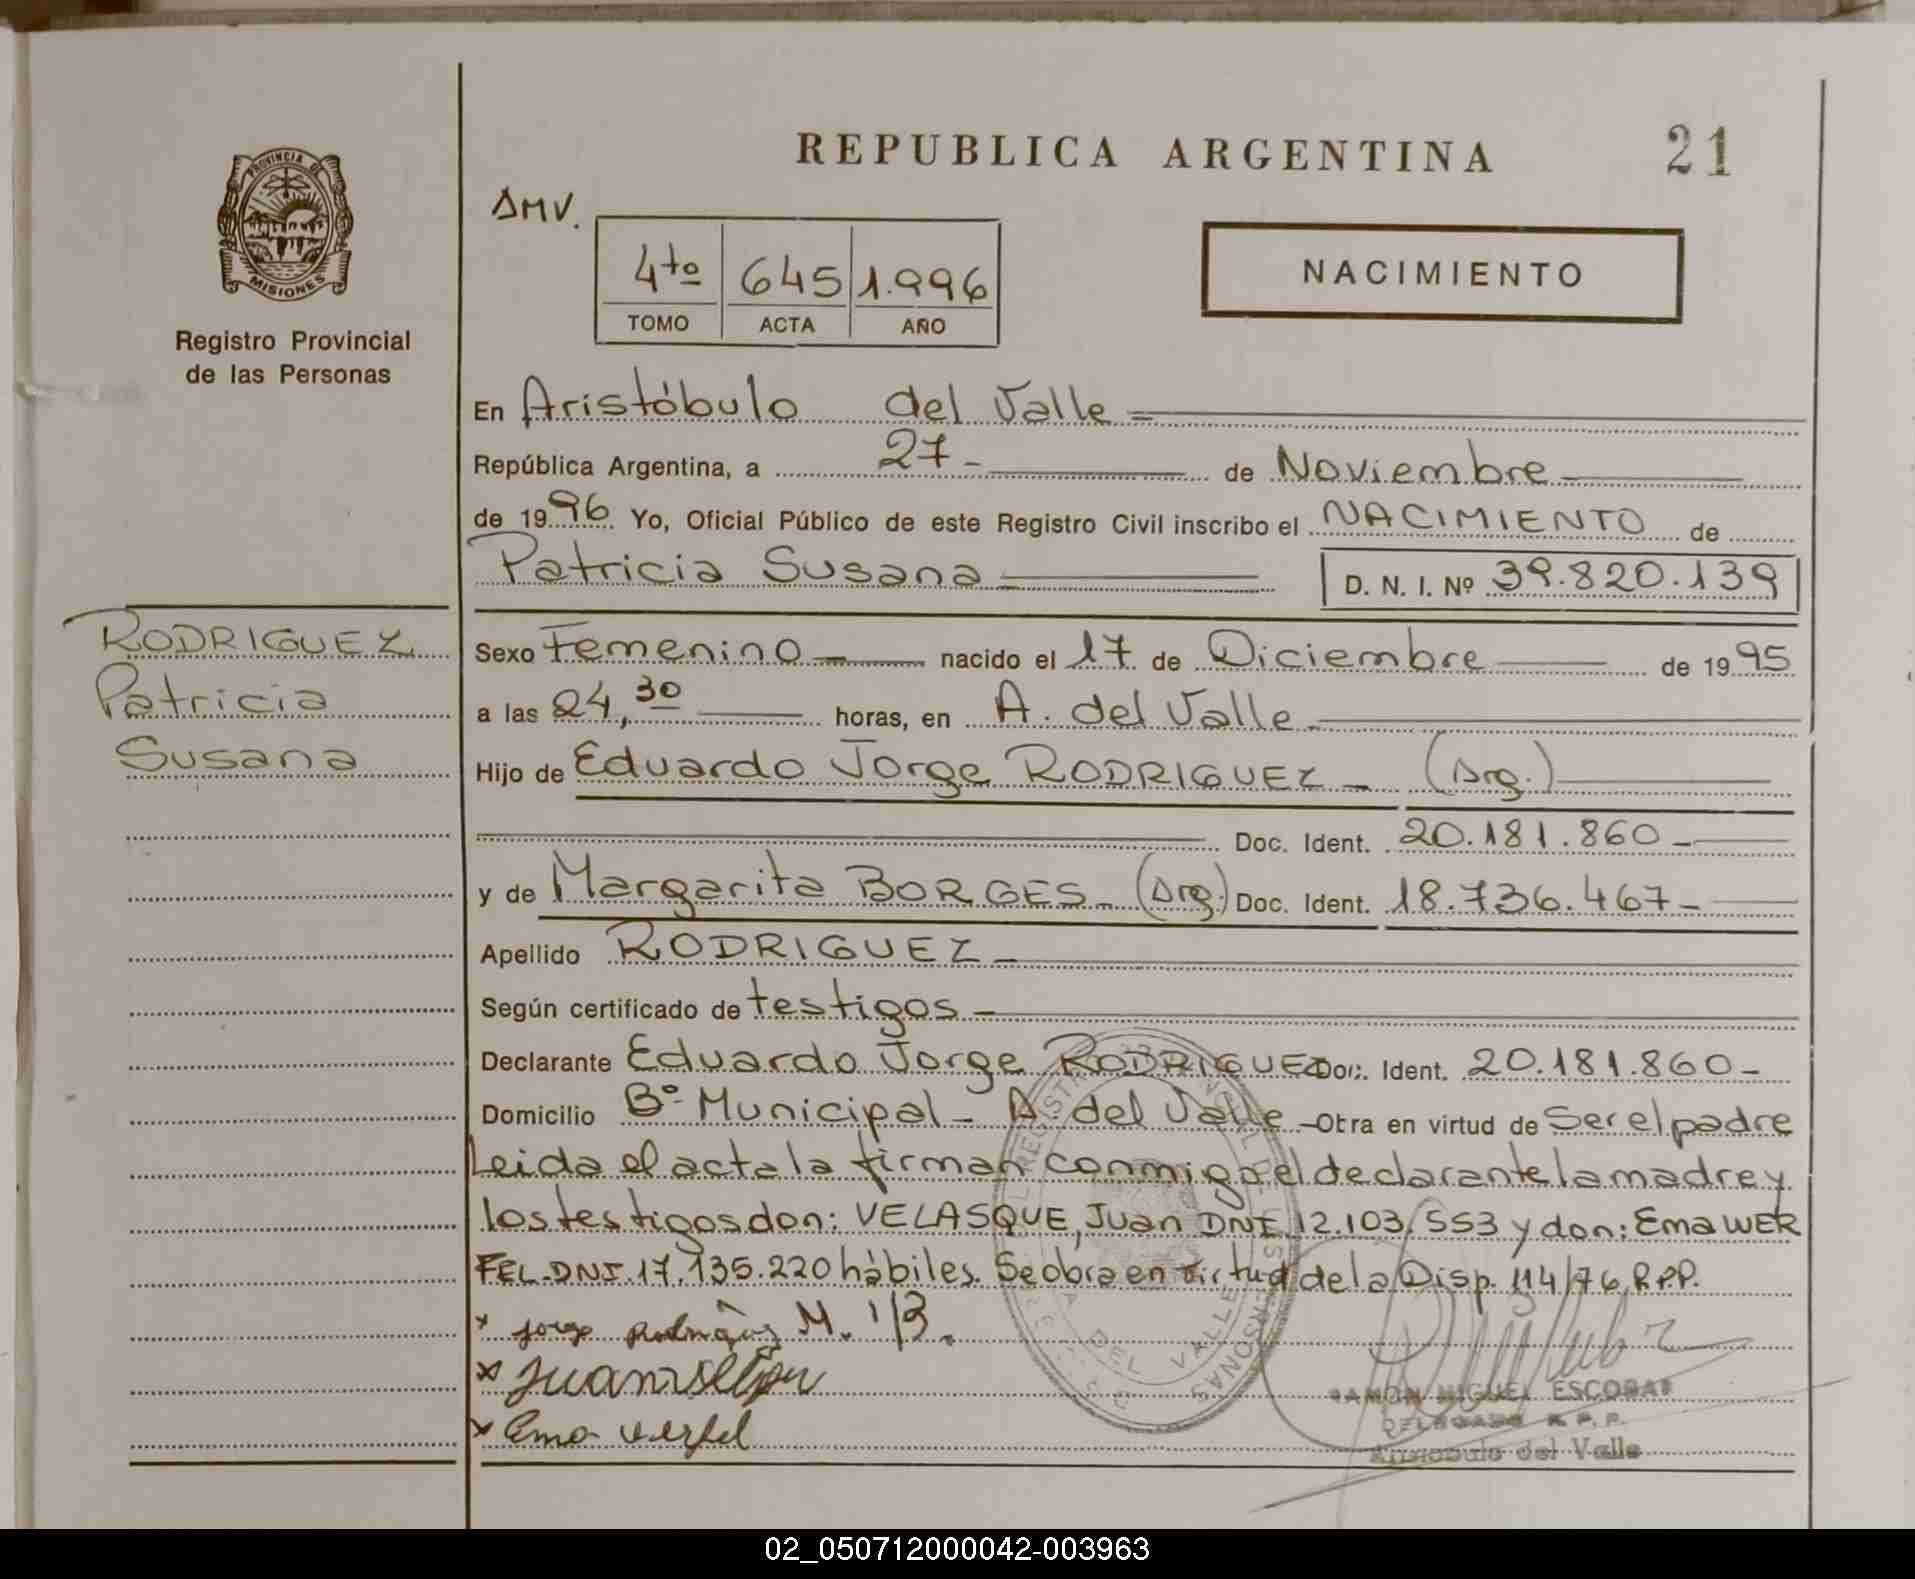 REPUBLICA ARGENTINA 21
PROVINCIA DE MISIONES
Registro Provincial
de las Personas
AMV.
4to 645 1.996
TOMO ACTA AÑO
NACIMIENTO
En Aristóbulo del Valle
República Argentina, a 27 de Noviembre
de 1996 Yo, Oficial Público de este Registro Civil inscribo el NACIMIENTO de
Patricia Susana D. N. I. Nº 39.820.139
RODRIGUEZ
Patricia
Susana
Sexo Femenino nacido el 17 de Diciembre de 1995
a las 24,30 horas, en A. del Valle
Hijo de Eduardo Jorge RODRIGUEZ (Arg.)
Doc. Ident. 20.181.860
y de Margarita BORGES (Arg.) Doc. Ident. 18.736.467
Apellido RODRIGUEZ
Según certificado de testigos
Declarante Eduardo Jorge RODRIGUEZ Doc. Ident. 20.181.860
Domicilio Bº Municipal - A. del Valle Obra en virtud de Ser el padre
Leida el acta la firman conmigo el declarante la madre y
los testigos don: VELASQUE, Juan DNI 12.103.553 y don: Ema WER
FEL. DNI. 17.135.220 hábiles. Se obra en virtud de la Disp. 114/76 R.P.P.
x Jorge Rodriguez M. B.
x Juan
x Ema Werfel
RAMON MIGUEL ESCOBAR
DELEGADO R.P.P.
Aristobulo del Valle
02_050712000042-003963